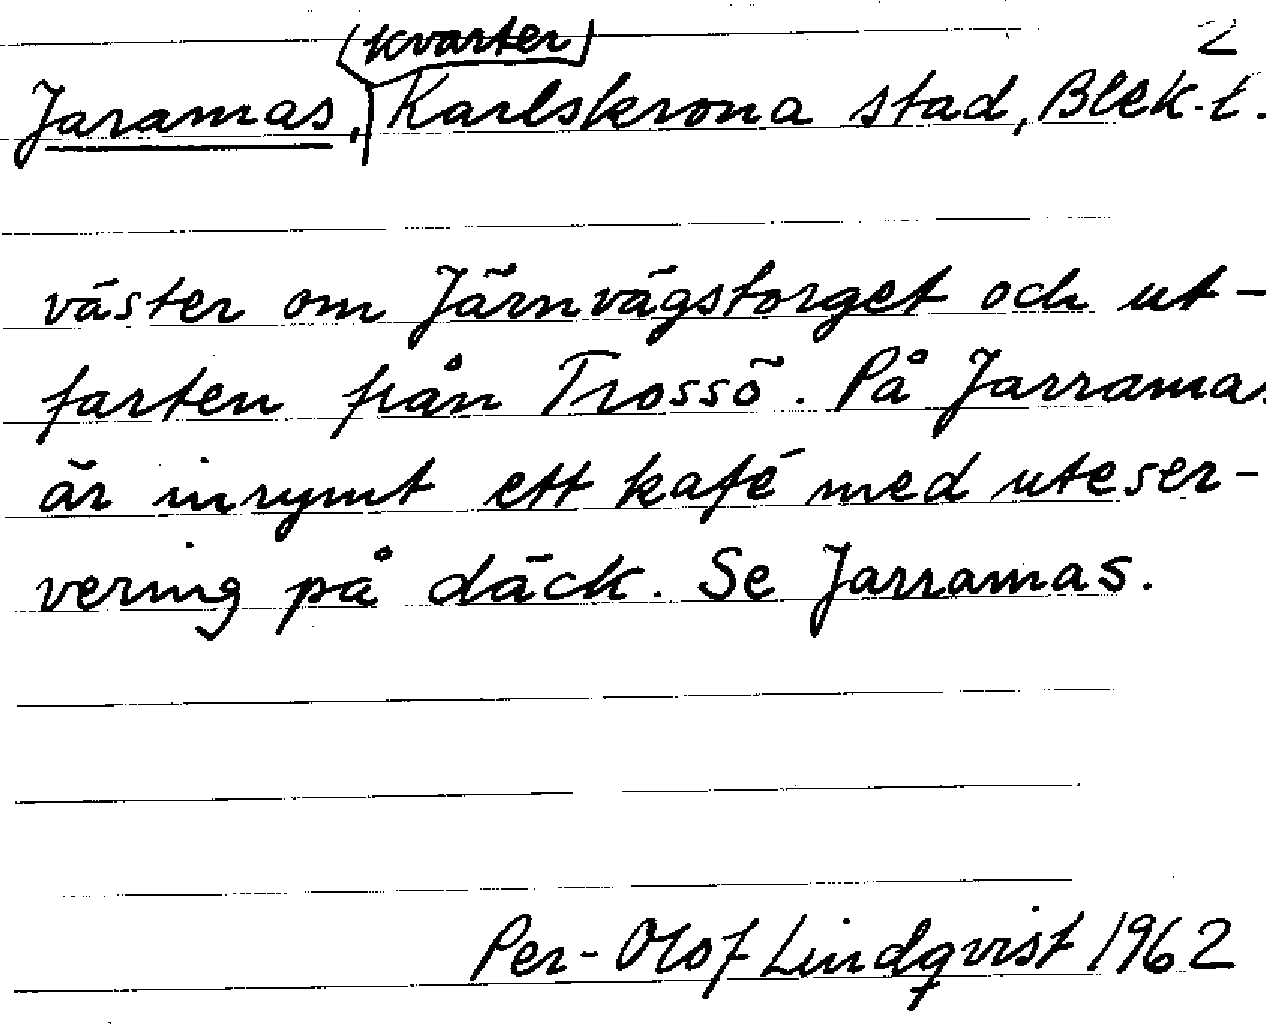 2
(kvarter)
Jaramas, Karlskrona stad, Blek. l.
väster om Järnvägstorget och ut-
farten från Trossö. På Jarramas
är inrymt ett kafé med uteser-
vering på däck. Se Jarramas.
Per-Olof Lindqvist 1962